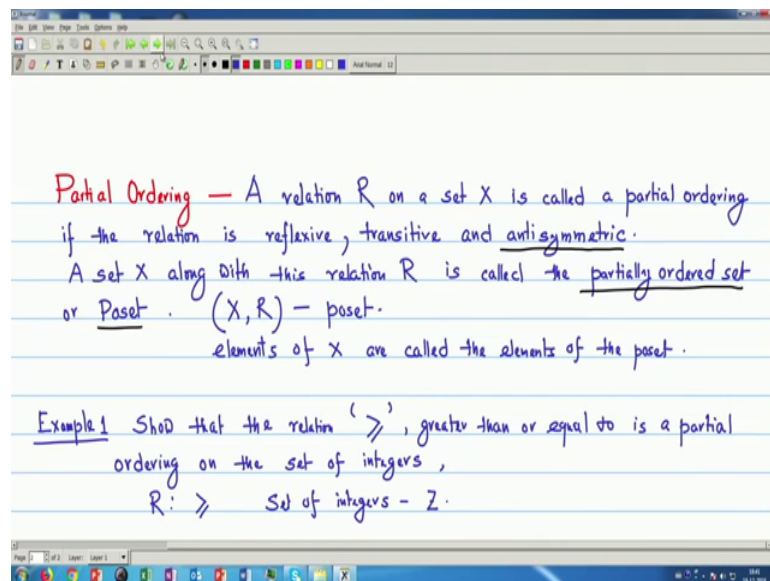 File Edit View Page Tools Options Help
Partial Ordering — A relation R on a set X is called a partial ordering
if the relation is reflexive, transitive and antisymmetric.
A set X along with this relation R is called the partially ordered set
or Poset. (X, R) – poset.
elements of X are called the elements of the poset.
Example 1 Show that the relation '≥', greater than or equal to is a partial
ordering on the set of integers,
R: ≥ Set of integers – Z.
Page 2 of 2 Layer: Layer 1